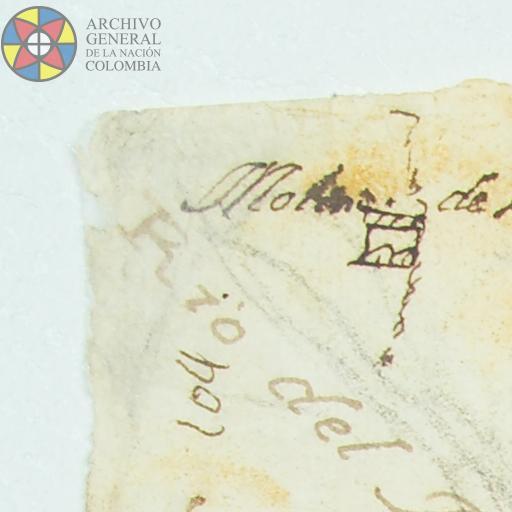 ARCHIVO
GENERAL
DE LA NACIÓN
COLOMBIA
Molino de
Rio del
104